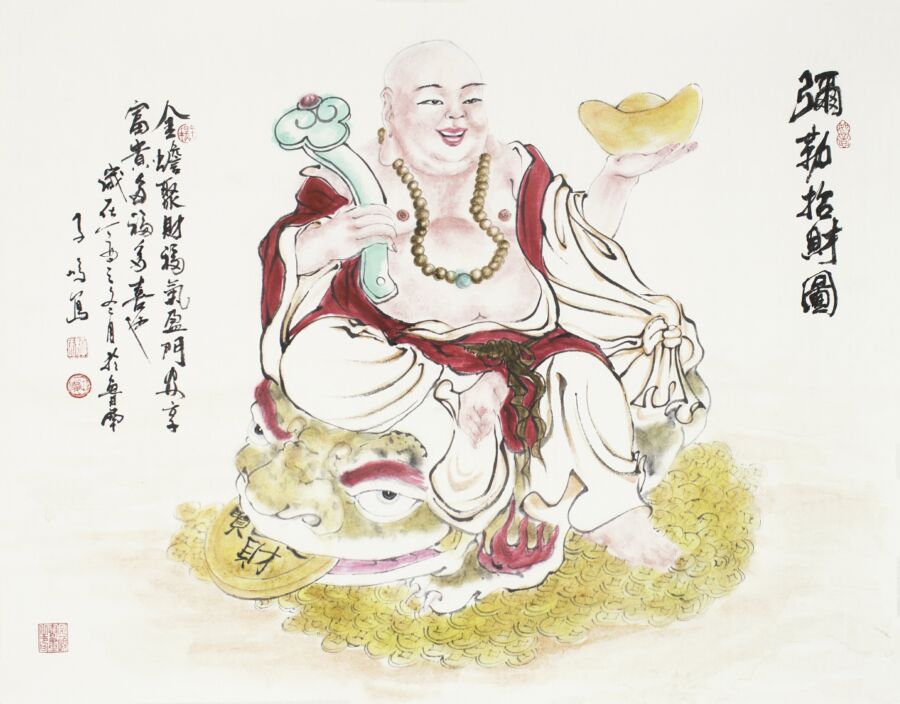 彌勒招財圖
金蟾聚財福氣盈門安享
富貴多福喜
歲在丁酉之冬月於魯南
子鳴寫
財